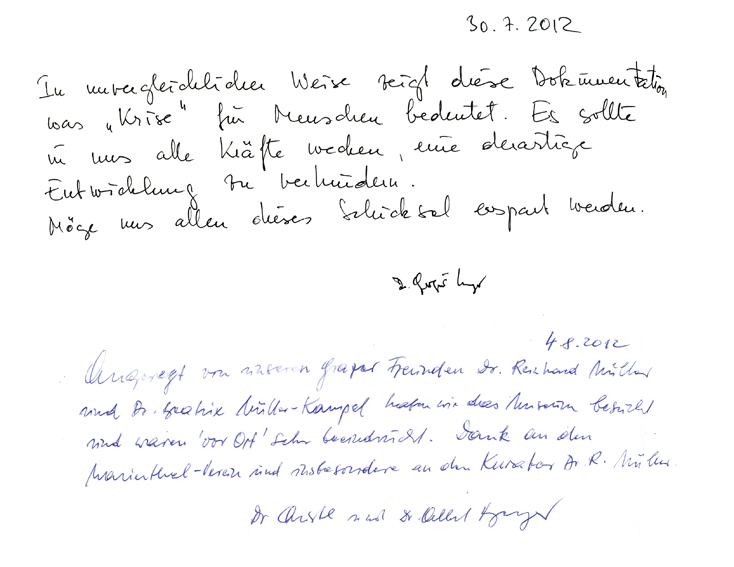 30.7.2012
In unvergleichlicher Weise zeigt diese Dokumentation
was „Krise“ für Menschen bedeutet. Es sollte
in uns alle Kräfte wecken, eine derartige
Entwicklung zu verhindern.
Möge uns allen dieses Schicksal erspart werden.
4.8.2012
Angeregt von unseren Grazer Freunden Dr. Reinhard Müller
und Dr. Beatrix Müller-Kampel haben wir das Museum besucht
und waren 'vor Ort' sehr beeindruckt. Dank an den
Marienthal-Verein und insbesondere an den Kurator Dr. R. Müller.
Dr und Dr.